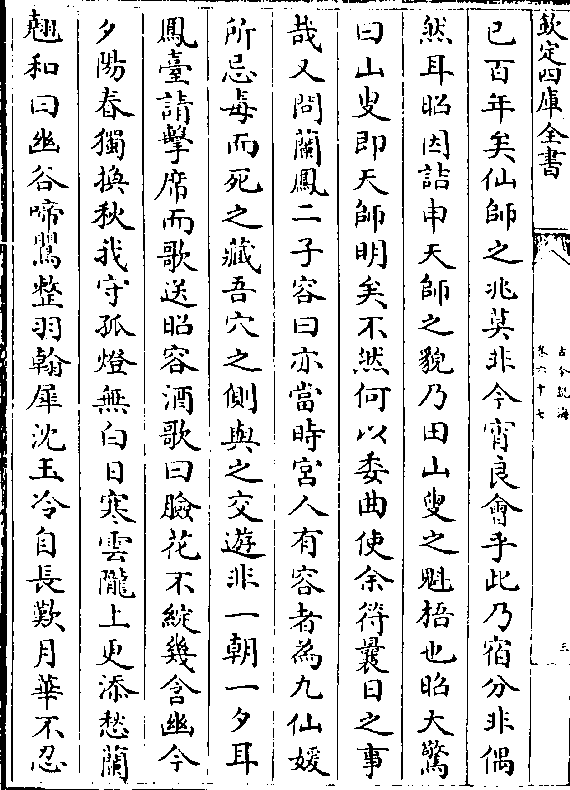 欽定四庫全書
古今說海
卷六十七
三
已百年矣仙師之兆莫非今宵良會乎此乃宿分非偶
然耳昭因詰申天師之貌乃田山叟之魁梧也昭大驚
曰山叟即天師明矣不然何以委曲使余符曩日之事
哉又問蘭鳳二子容曰亦當時宮人有容者為九仙媛
所忌毒而死之藏吾穴之側與之交遊非一朝一夕耳
鳳臺請擊席而歌送昭容酒歌曰臉花不綻幾含幽今
夕陽春獨換秋我守孤燈無白日寒雲隴上更添愁蘭
翹和曰幽谷啼鶯整羽翰犀沈玉冷自長歎月華不忍